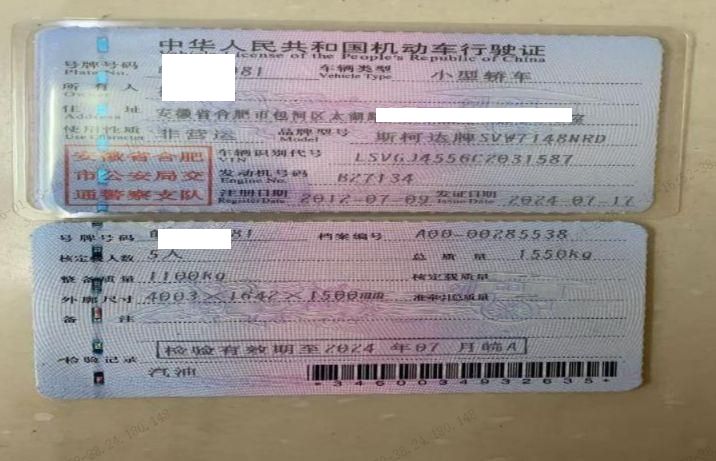 中华人民共和国机动车行驶证
Vehicle License of the People's Republic of China
号牌号码 81 车辆类型 小型轿车
Plate No. Vehicle Type
所有人
Owner
住址 安徽省合肥市包河区太湖
Address
使用性质 非营运 品牌型号 斯柯达牌SVW7148NRD
Use Character Model
安徽省合肥市公安局交通警察支队
车辆识别代号 LSVGJ4556C2031587
VIN
发动机号码 B27134
Engine No.
注册日期 2012-07-09 发证日期 2024-07-17
Register Date Issue Date
号牌号码 81 档案编号 A00-00285538
核定载人数 5人 总质量 1550kg
整备质量 1100kg 核定载质量
外廓尺寸 4003×1642×1500mm 准牵引总质量
备注
检验有效期至2024年07月皖A
检验记录
汽油
*3460034932635*